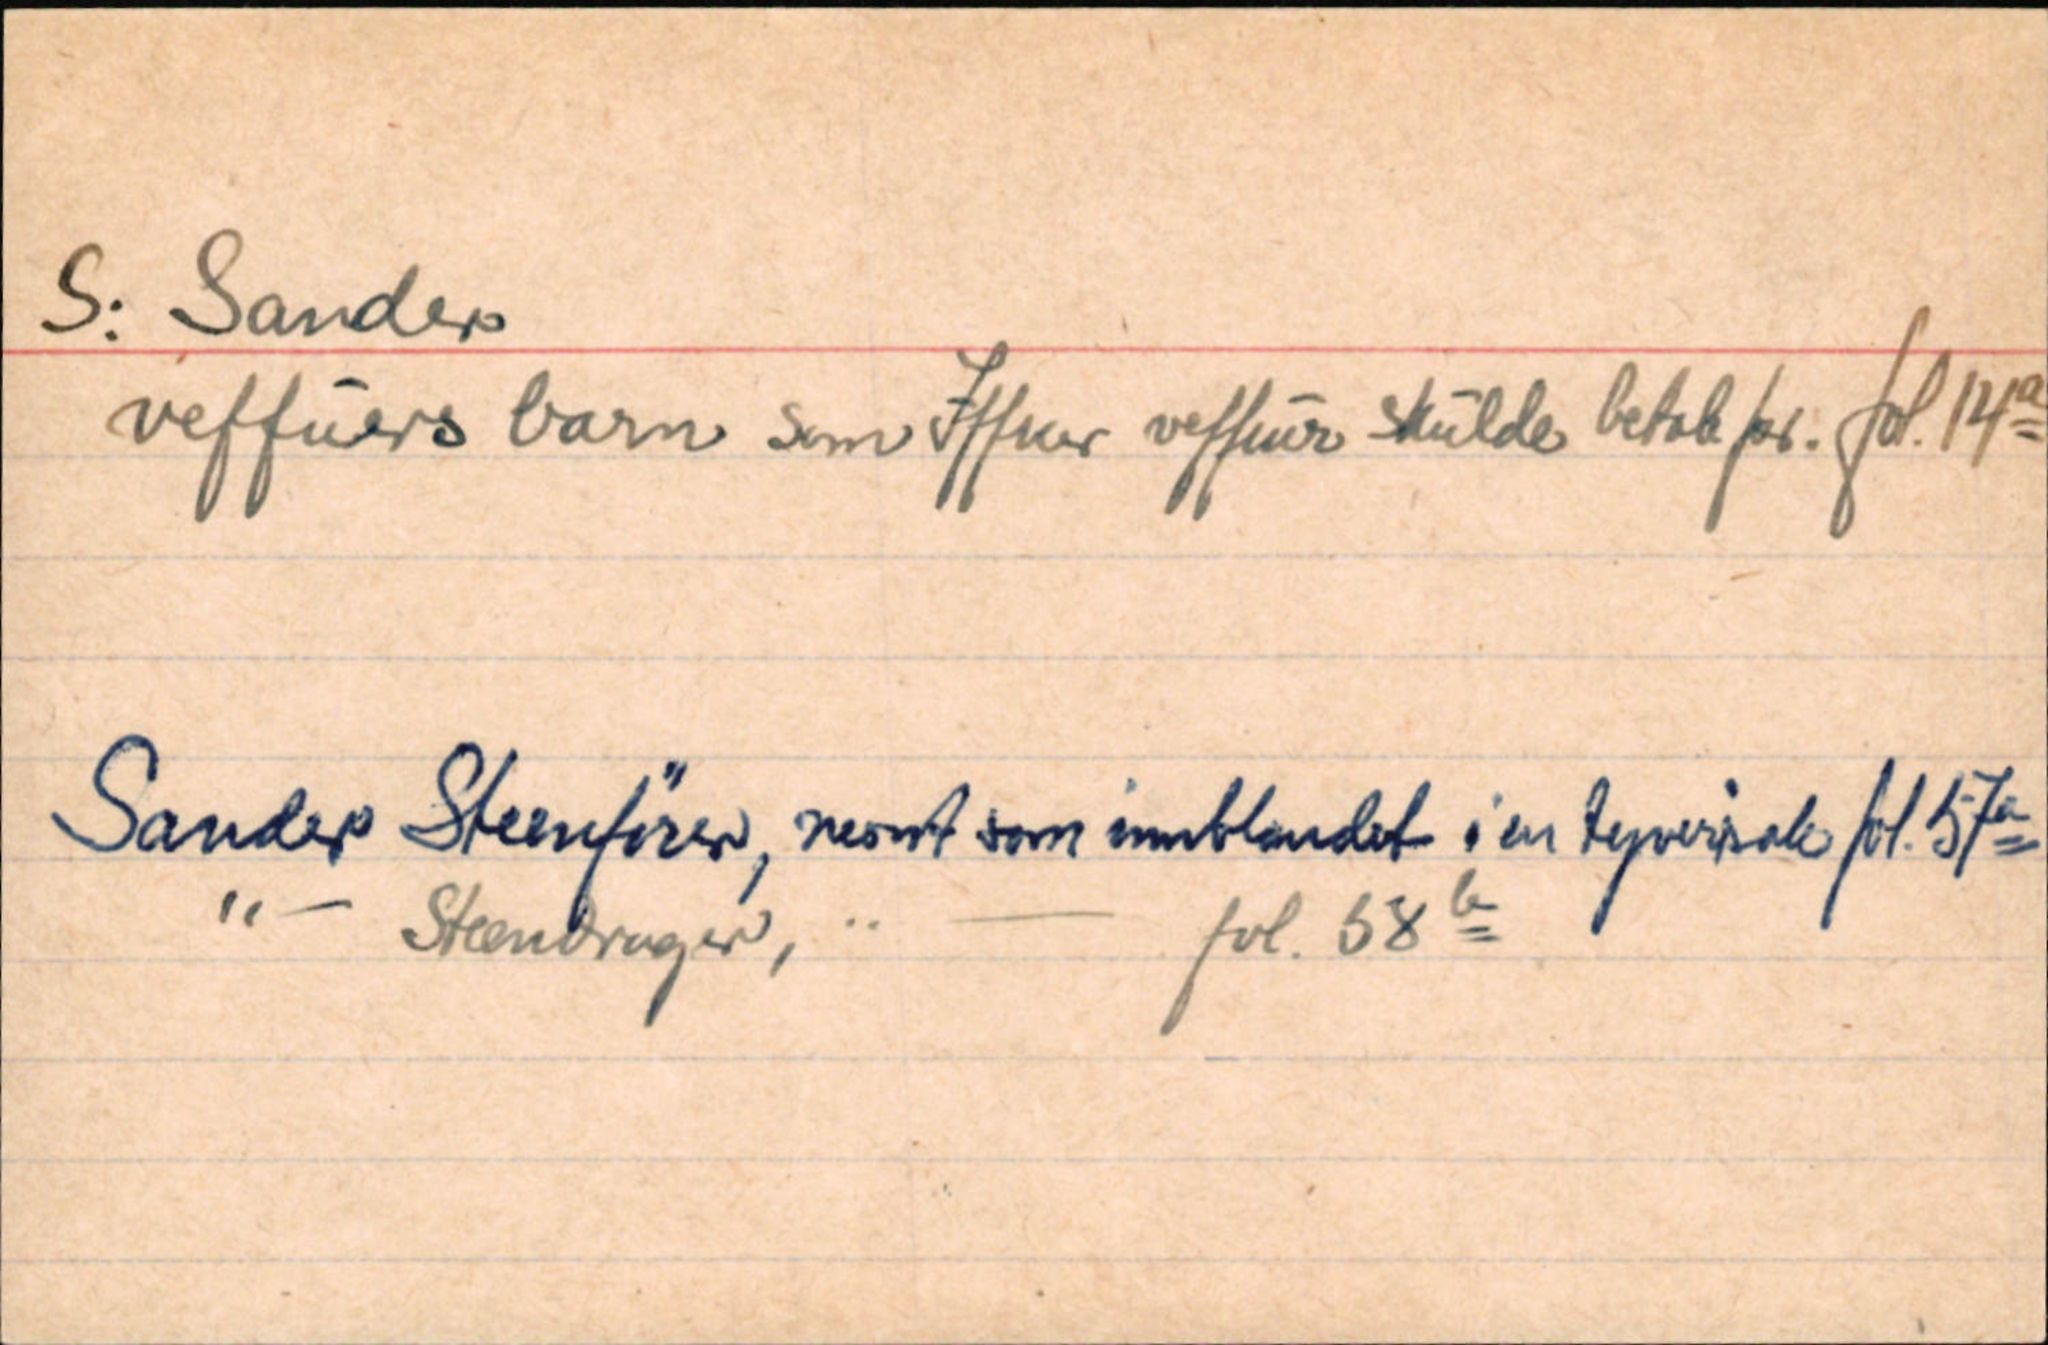 S: Sander
veffuers barn som Iffuer veffuer skulde betale for. fol. 14a
Sander Steenförer, nevnt som innblandet i en tyverisak fol. 57a
"— Steendrager, " — fol. 58b